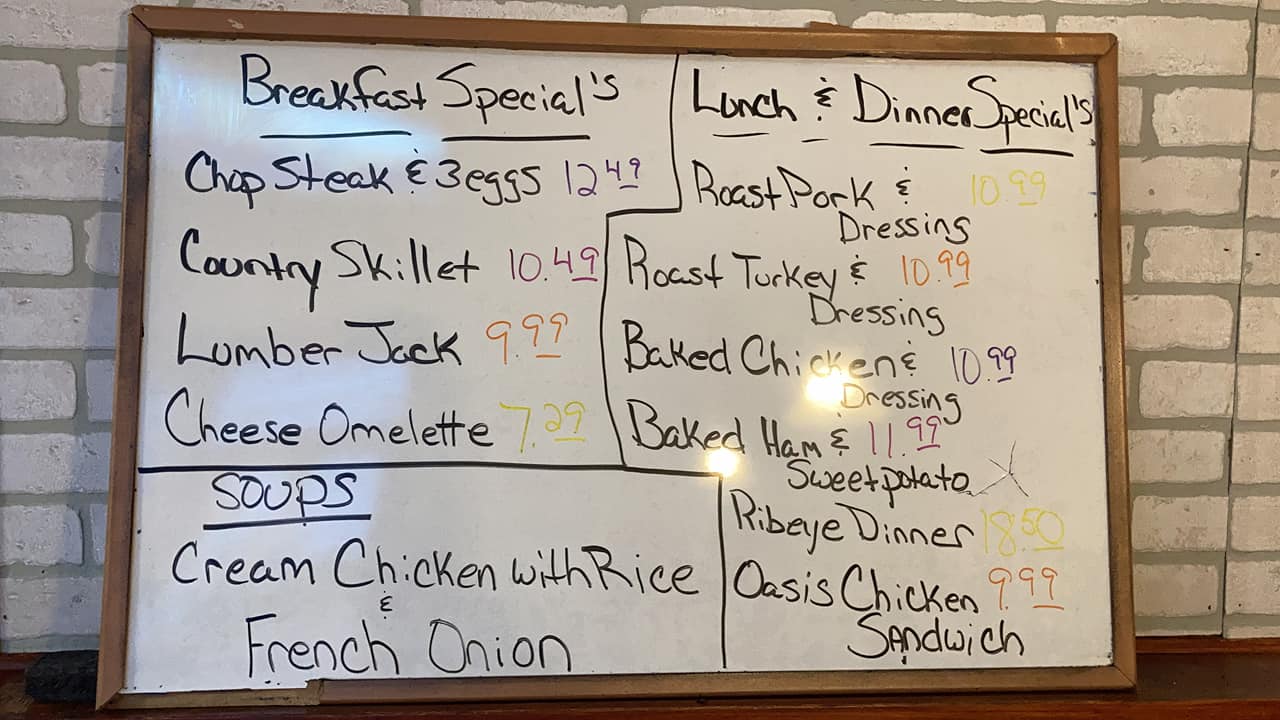 Breakfast Special's
Chop Steak & 3 eggs 12.49
Country Skillet 10.49
Lumber Jack 9.99
Cheese Omelette 7.29
SOUPS
Cream Chicken with Rice
&
French Onion
Lunch & Dinner Special's
Roast Pork & 10.99
Dressing
Roast Turkey & 10.99
Dressing
Baked Chicken & 10.99
Dressing
Baked Ham & 11.99
Sweet potato
Ribeye Dinner 18.50
Oasis Chicken 9.99
Sandwich